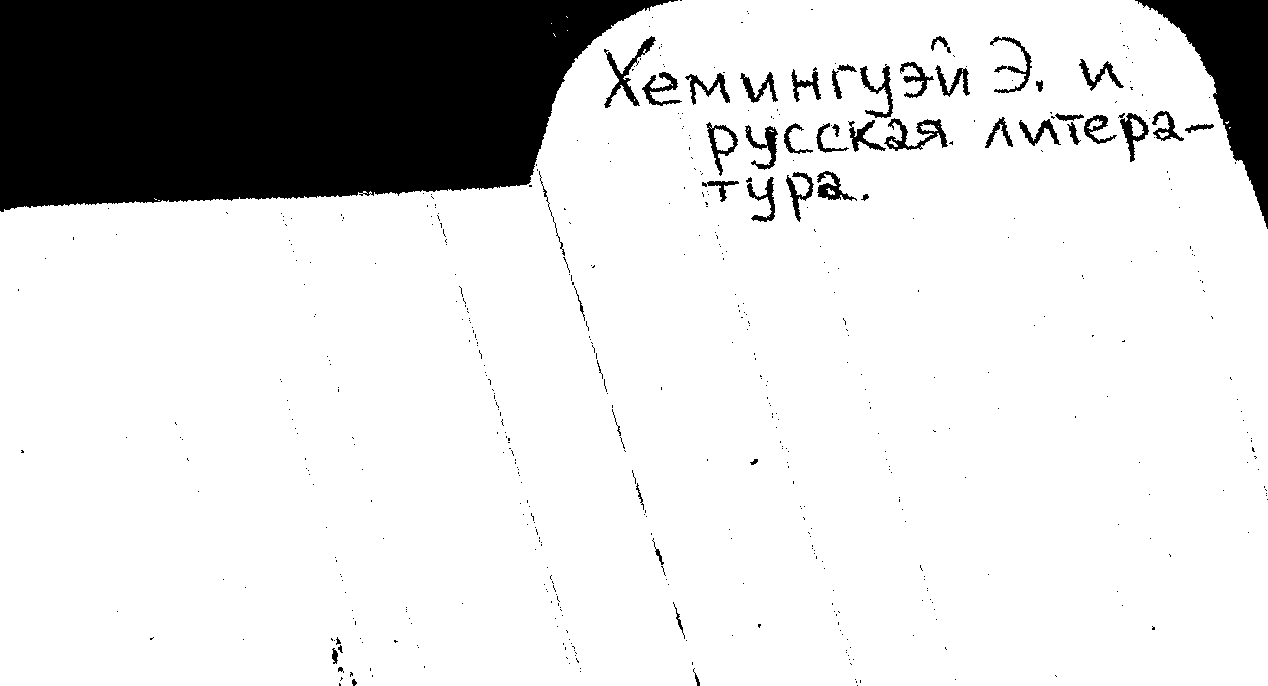 Хемингуэй Э. и
русская литера-
тура.